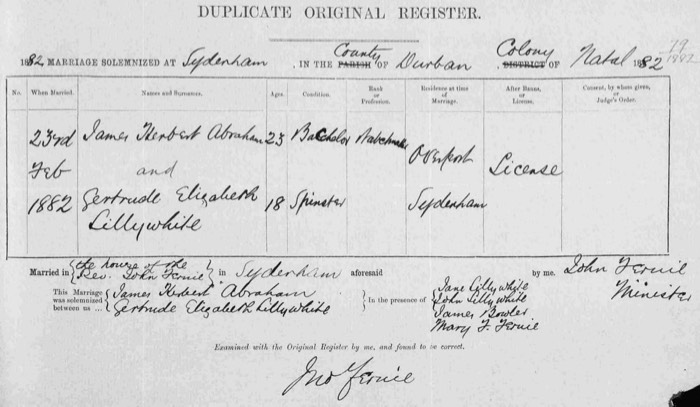 DUPLICATE ORIGINAL REGISTER.
19
1882
1882 MARRIAGE SOLEMNIZED AT Sydenham, IN THE PARISH County OF Durban, DISTRICT Colony OF Natal 1882
No. When Married. Names and Surnames. Ages. Condition. Rank or Profession. Residence at time of Marriage. After Banns, or License. Consent, by whom given, or Judge's Order.
23rd James Herbert Abraham 23 Bachelor Watchmaker Overport
Feb and License
1882 Gertrude Elizabeth 18 Spinster Sydenham
Lillywhite
Married in the house of the Rev. John Fernie in Sydenham aforesaid by me, John Fernie
Minister
This Marriage was solemnized between us ... James Herbert Abraham
Gertrude Elizabeth Lillywhite
In the presence of Jane Lillywhite
John Lillywhite
James Bowler
Mary F. Fernie
Examined with the Original Register by me, and found to be correct.
Jno Fernie